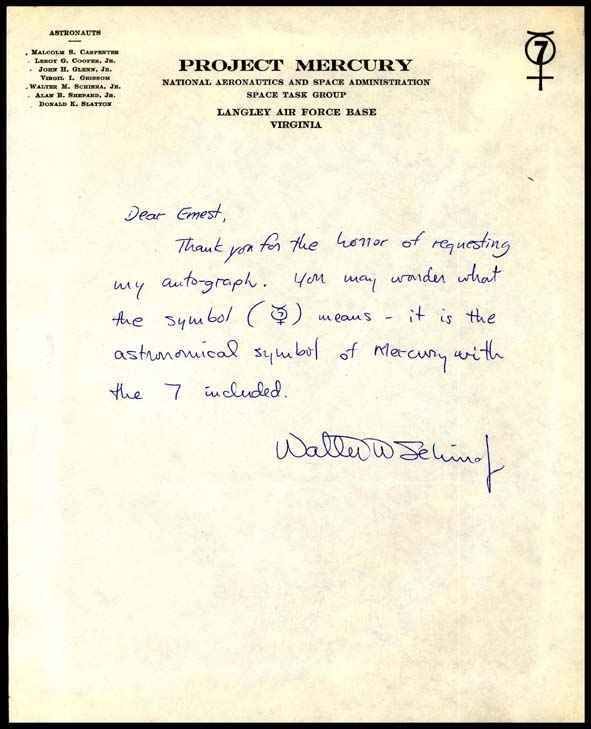 ASTRONAUTS
MALCOLM S. CARPENTER
LEROY G. COOPER, JR.
JOHN H. GLENN, JR.
VIRGIL I. GRISSOM
WALTER M. SCHIRRA, JR.
ALAN B. SHEPARD, JR.
DONALD K. SLAYTON
PROJECT MERCURY
NATIONAL AERONAUTICS AND SPACE ADMINISTRATION
SPACE TASK GROUP
LANGLEY AIR FORCE BASE
VIRGINIA
7
Dear Ernest,
Thank you for the honor of requesting
my auto-graph. You may wonder what
the symbol (☿) means - it is the
astronomical symbol of Mercury with
the 7 included.
Walter M Schirra Jr